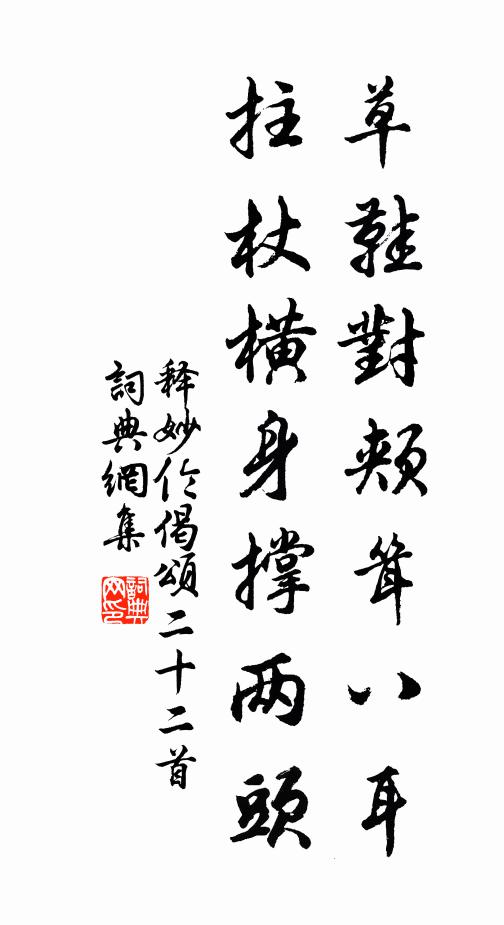 草鞋對頰耸八耳
拄杖橫身撐两頭
释妙伦偈頌二十二首
詞典網集
詞典
网印